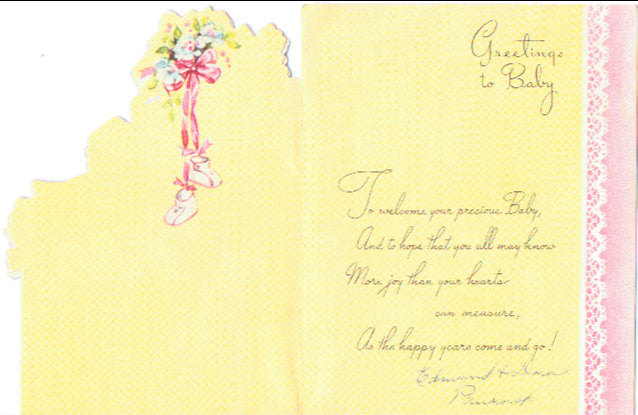 Greetings
to Baby
To welcome your precious Baby,
And to hope that you all may know
More joy than your hearts
can measure,
As the happy years come and go!
Edmund &